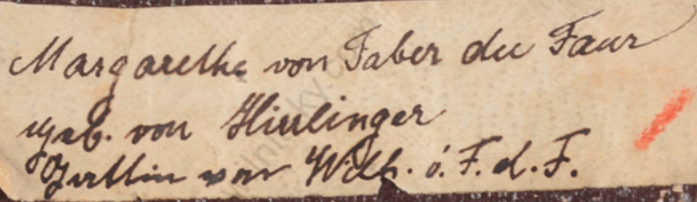 Margarethe von Faber du Faur
geb. von Hirlinger
Gattin von Wilh. v. F. d. F.